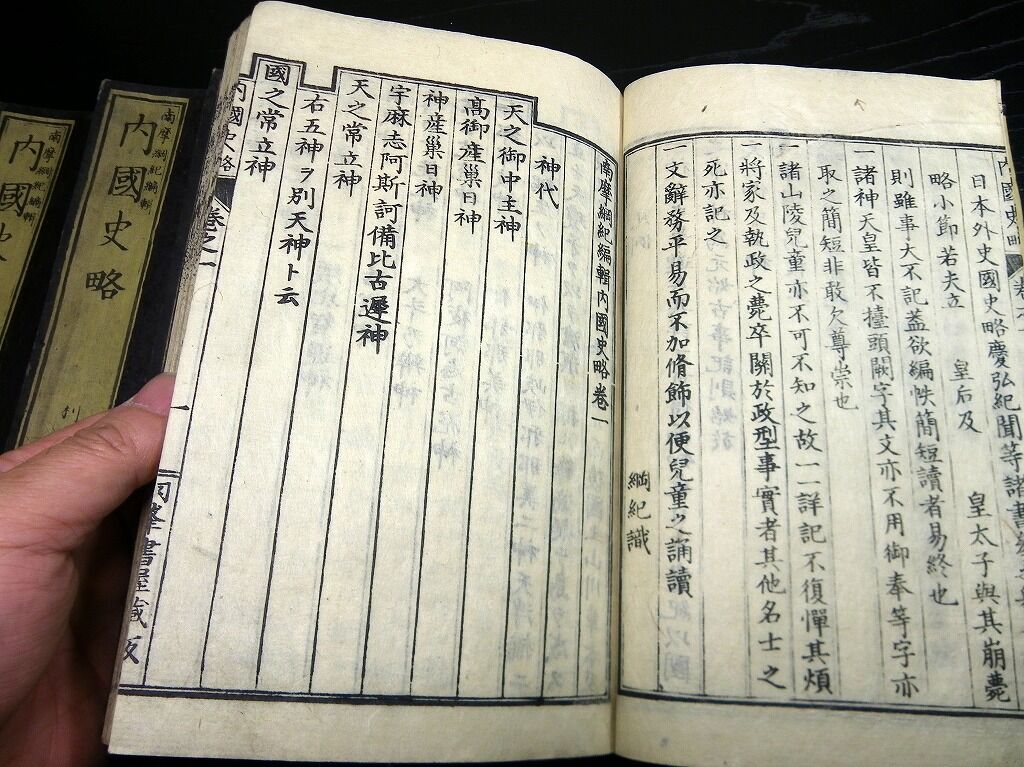 日本外史國史略慶弘紀聞等諸書
略小節若夫立 皇后及 皇太子與其崩薨
則雖事大不記蓋欲編帙簡短讀者易終也
一諸神天皇皆不擡頭闕字其文亦不用御奉等字亦
取之簡短非敢欠尊崇也
一諸山陵兒童亦不可不知之故一一詳記不復憚其煩
一將家及執政之薨卒關於政型事實者其他名士之
死亦記之
一文辭務平易而不加脩飾以便兒童之誦讀
綱紀識
南摩綱紀編輯內國史略卷一
神代
天之御中主神
高御產巢日神
神產巢日神
宇麻志阿斯訶備比古遲神
天之常立神
右五神ヲ別天神ト云
國之常立神
內國史略 卷之一 一 書屋藏版
南摩綱紀編輯
內國史略
南摩綱紀編輯
內國史